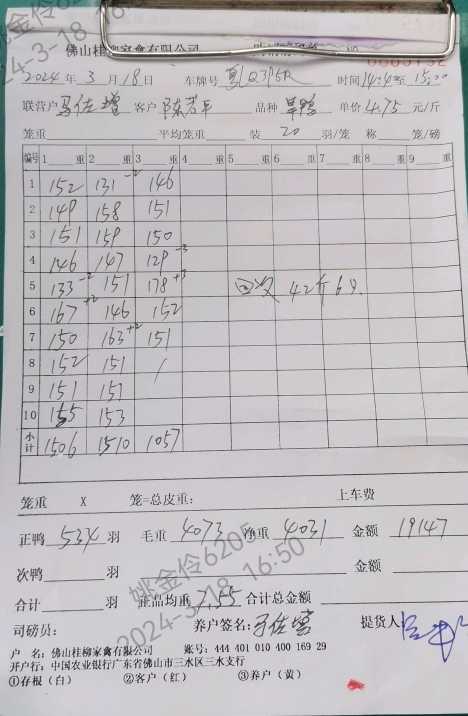 佛山桂柳家禽有限公司
2024年3月18日 车牌号 时间 至 15:00
联营户 马佐增 客户 品种 草鸭 单价 4.75 元/斤
笼重 平均笼重 装 20 羽/笼 称 笼/磅
编号 1 重 2 重 3 重 4 重 5 重 6 重 7 重 8 重 9 重
1 152 131 -2 146
2 149 158 151
3 151 159 150
4 146 147 129 -3
5 133 -2 151 178 +3 回欠 42斤 6只
6 167 +2 146 152
7 150 163 +2 151
8 152 151 /
9 151 151
10 155 153
小计 1506 1510 1057
笼重 X 笼=总皮重: 上车费
正鸭 534 羽 毛重 4073 净重 4031 金额 19147
次鸭 羽 金额
合计 羽 正品均重 7.55 合计总金额
司磅员: 养户签名: 马佐增 提货人:
户 名: 佛山桂柳家禽有限公司 账号: 444 401 010 400 169 29
开户行: 中国农业银行广东省佛山市三水区三水支行
①存根（白） ②客户（红） ③养户（黄）
姚金伶6205
2024-3-18 16:50